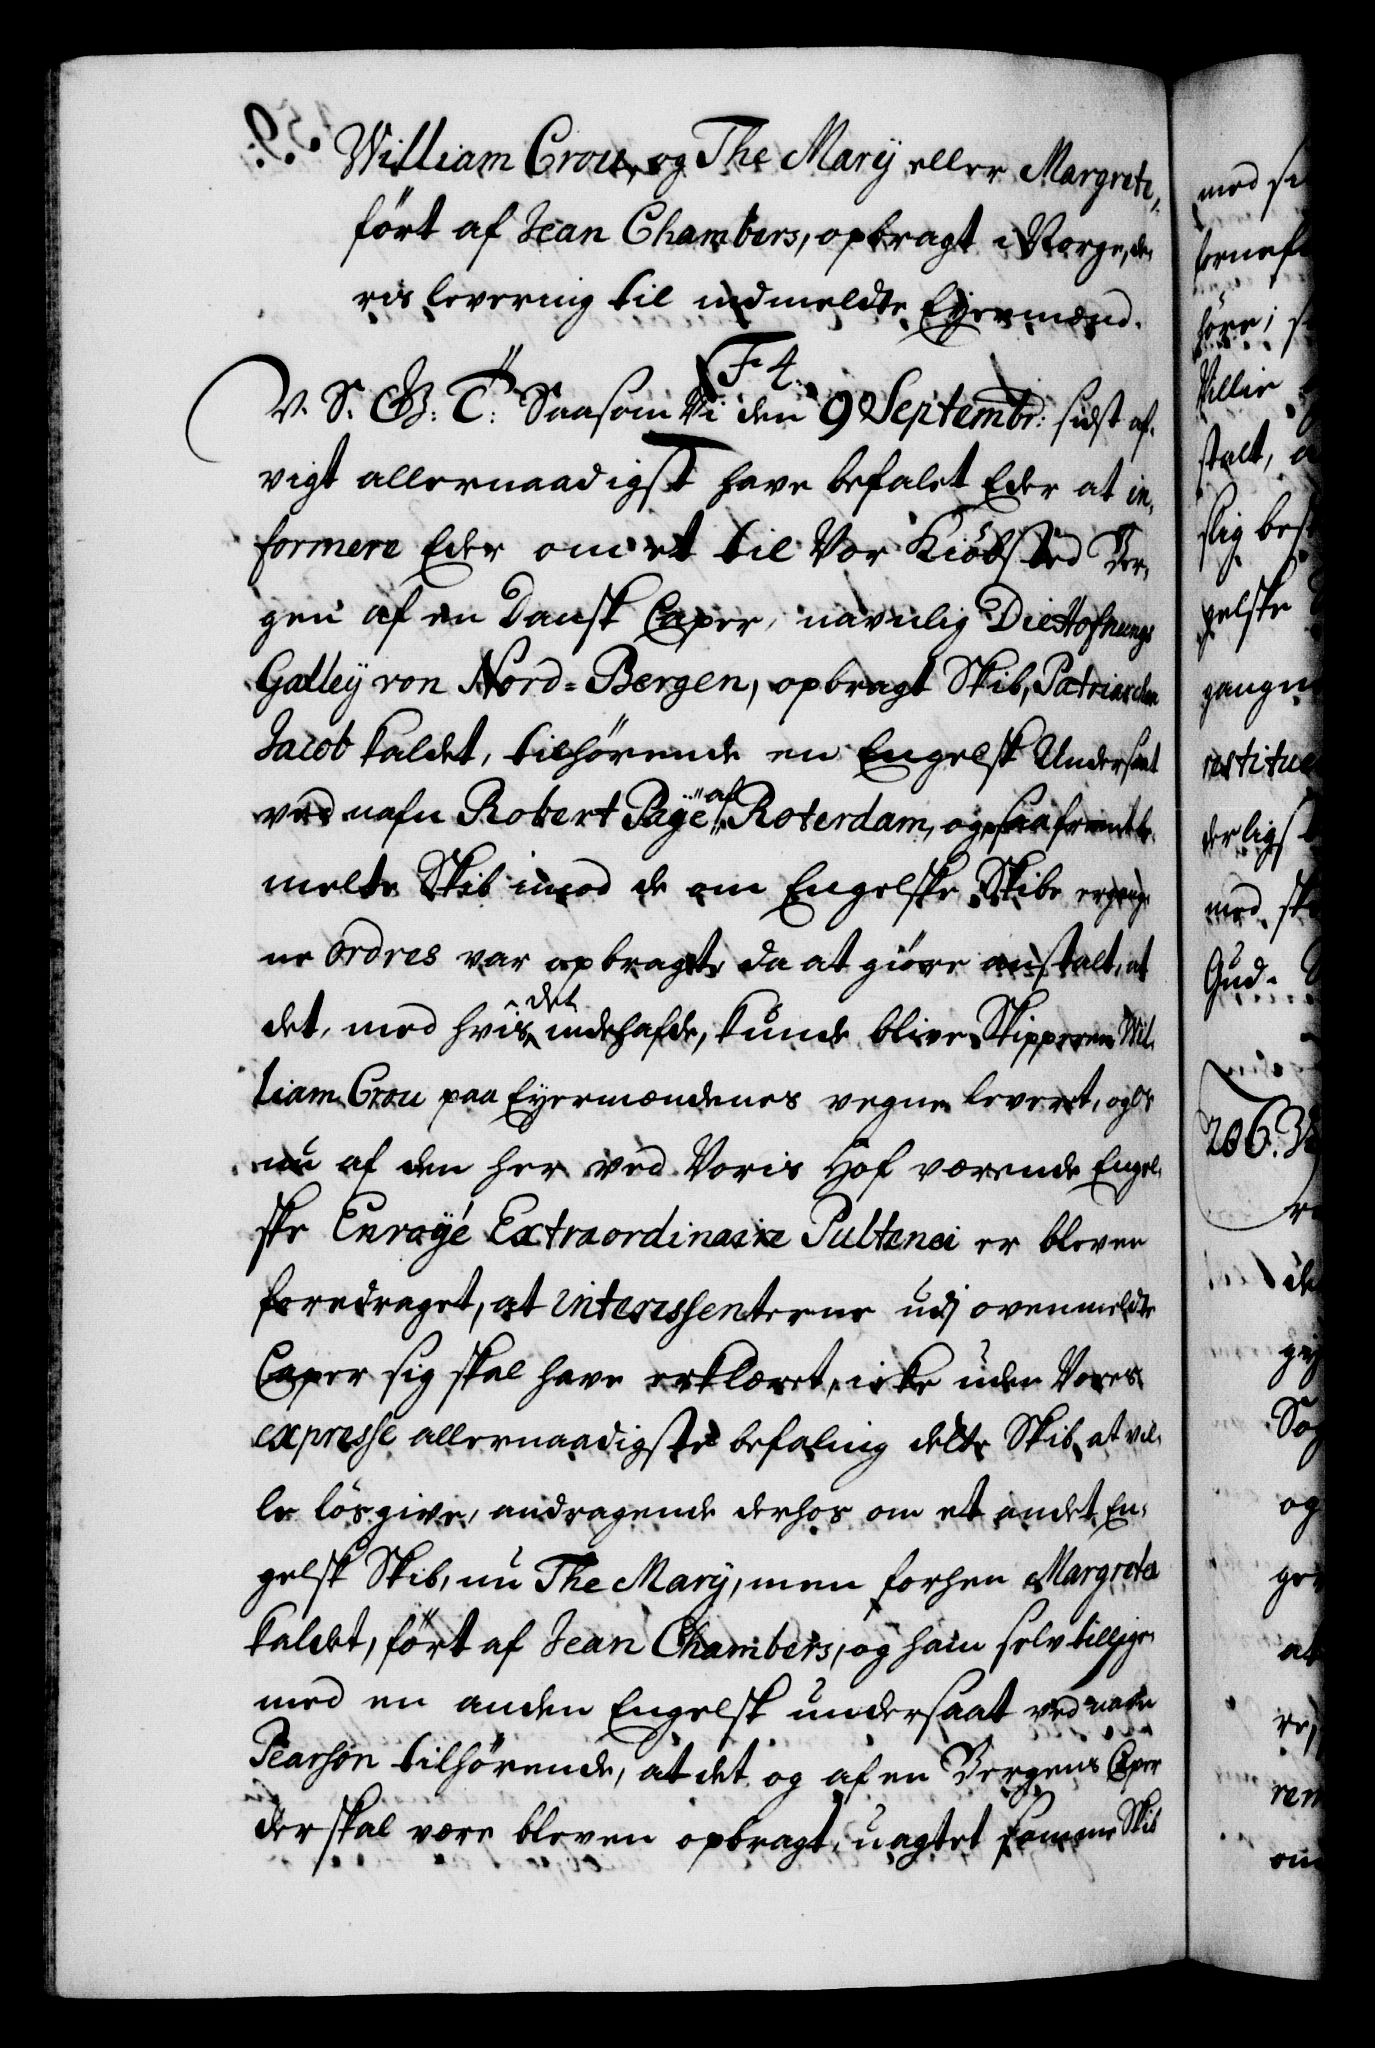 William Crou, og The Marÿ eller Margrete,
ført af Jean Chambers, opbragt i Norge, de-
ris levering til indmeldte Eyermænd.
F 4.
V. S. G. B: T: Saasom Vi den 9 Septembr: sidst af-
vigt allernaadigst have befalet Eder at in-
formere Eder om et til Vor Kiöbsted Ber-
gen af en Dansk Caper, navnlig Die Hofnungs
Galleÿ von Nord=Bergen, opbragt Skib, Patriarchen
Jacob kaldet, tilhørende en Engelsk Undersaat
ved nafn Robert Page af Roterdam, og saafremt be-
melte Skib imod de om Engelske Skibe ergang-
ne ordres var opbragt, da at giöre anstalt, at
det, med hvis det indehafde, kunde blive Skipperen Wil-
liam Crou paa Eyermændenes vegne leveret, og Os
nu af den her ved Voris Hof værende Engel-
ske Envoÿé Extraordinaire Pultenei er bleven
foredraget, at interessenterne udj ovenmeldte
Caper sig skal have erklæret, icke uden Vores
expresse allernaadigste befaling delte Skib at vil-
le lös give, andragende derhos om et andet En-
gelsk Skib, nu The Marÿ, men forhen Margreta
kaldet, fört af Jean Chambers, og ham selv tillige
med en anden Engelsk undersaat ved nafn
Pearson tilhørende, at det og af en Bergens Caper
der skal være bleven opbragt, uagtet samme Skib